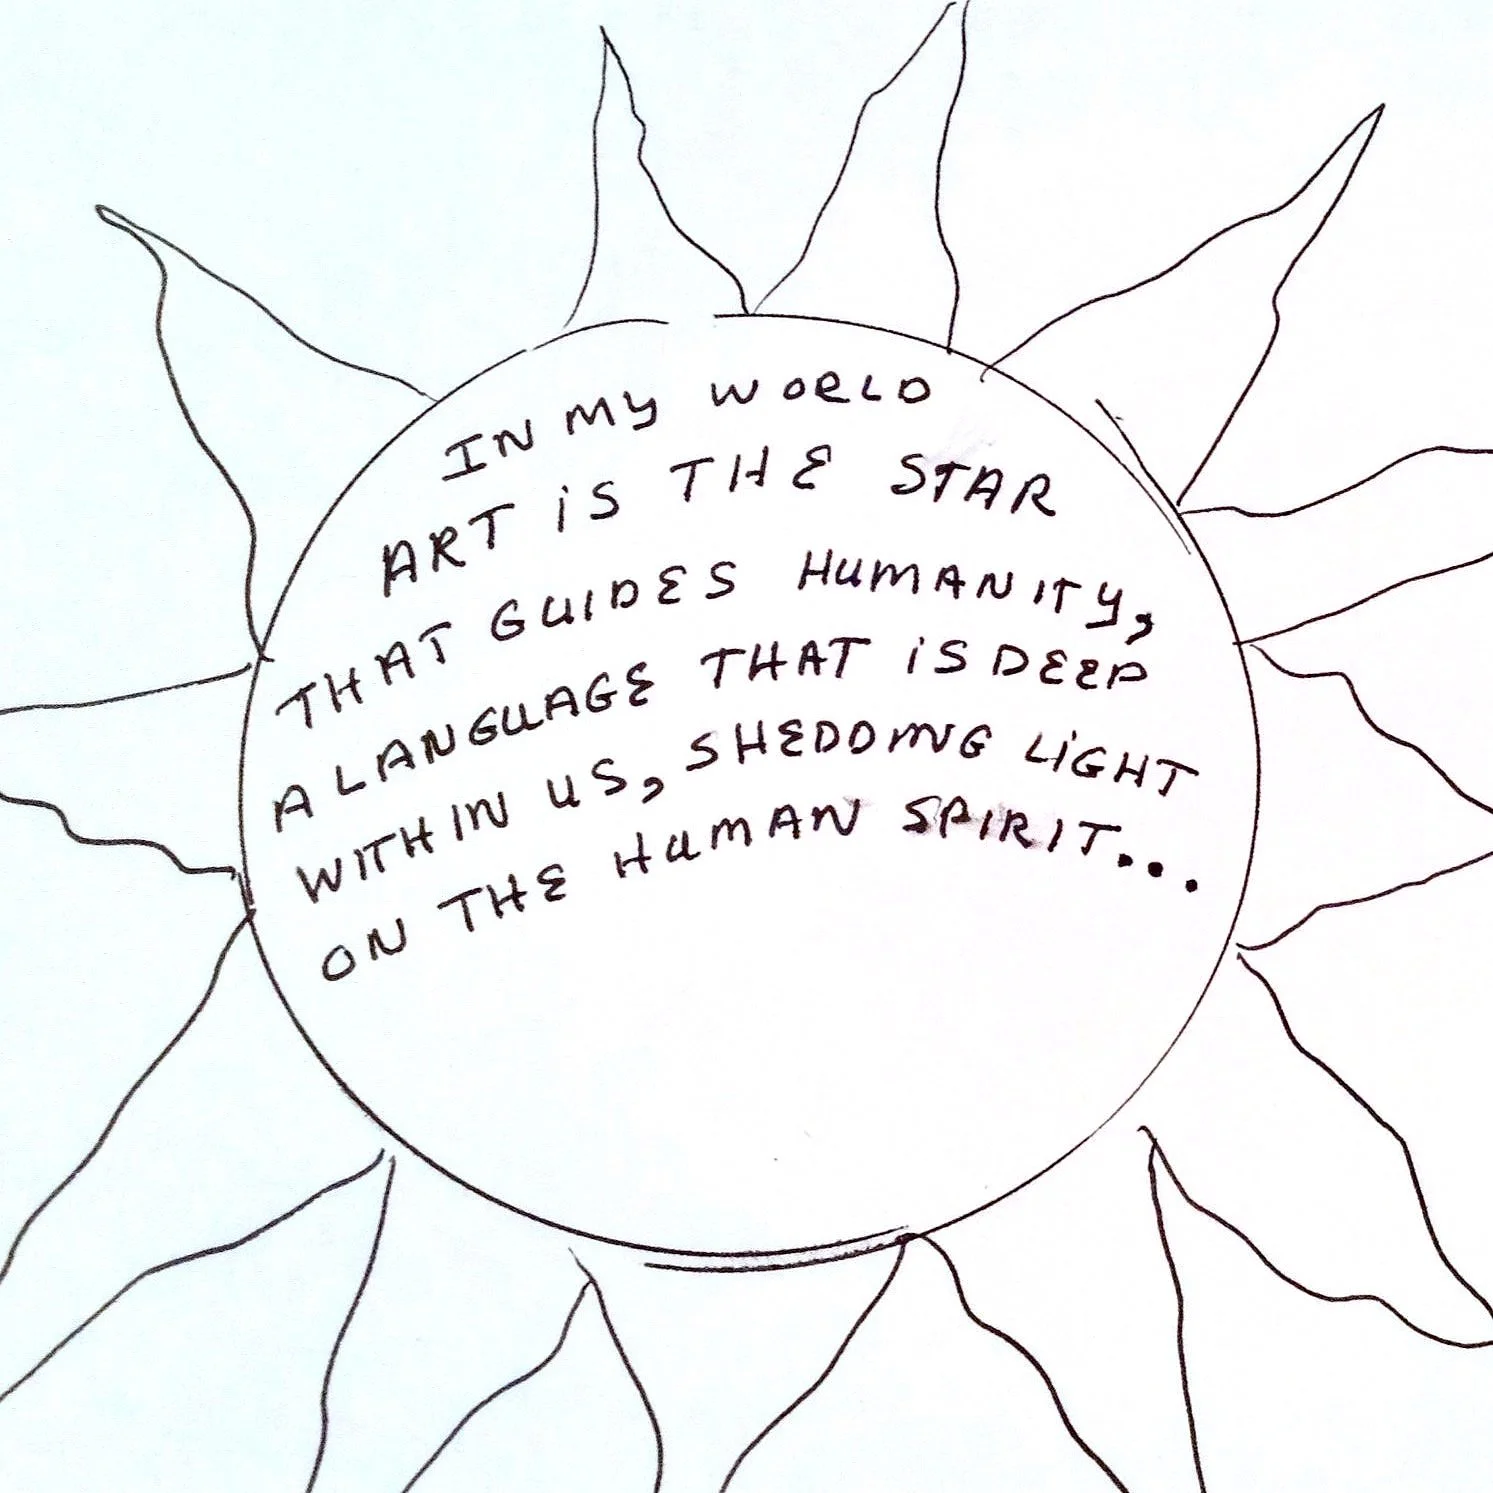 IN MY WORLD
ART iS THE STAR
THAT GUIDES HUMANITY,
A LANGUAGE THAT iS DEEP
WITHIN US, SHEDDING LiGHT
ON THE HUMAN SPIRIT...